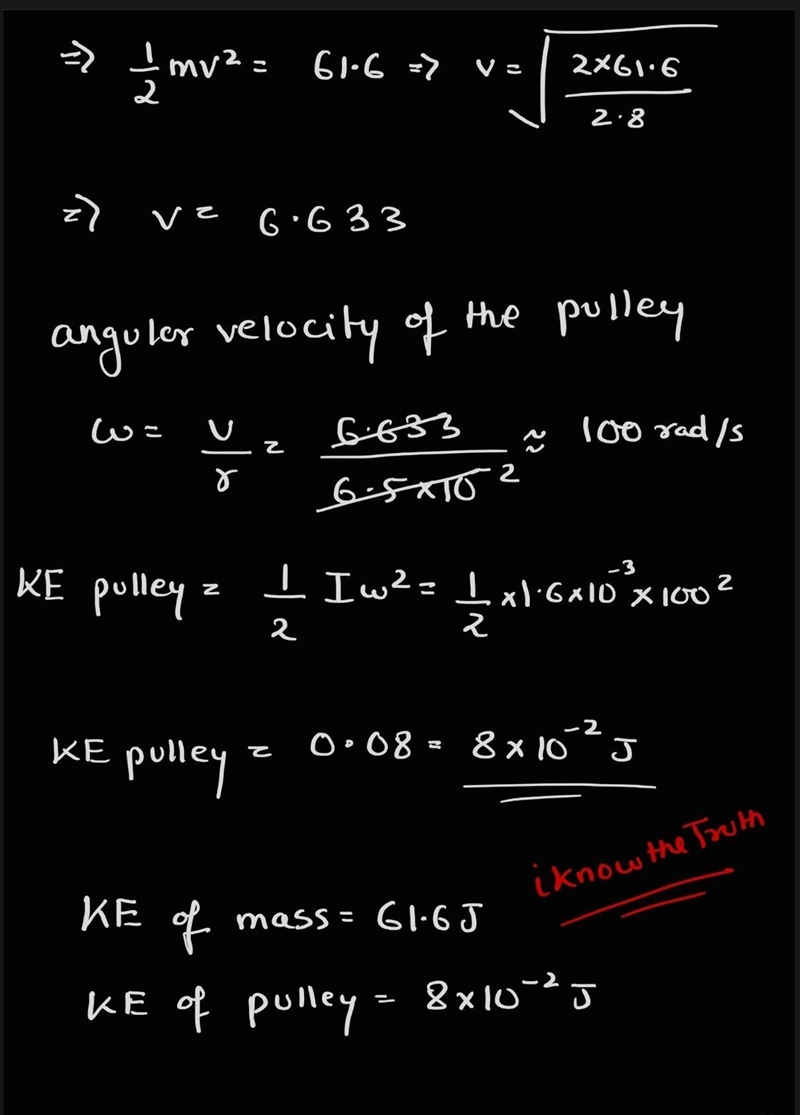 => 1/2 mv² = 61.6 => v = √(2×61.6/2.8)
=> v = 6.633
angular velocity of the pulley
ω = v/r = 6.633/6.5×10⁻² ≈ 100 rad/s
KE pulley = 1/2 Iω² = 1/2 ×1.6×10⁻³ × 100²
KE pulley = 0.08 = 8×10⁻² J
iknow the Truth
KE of mass = 61.6J
KE of pulley = 8×10⁻² J